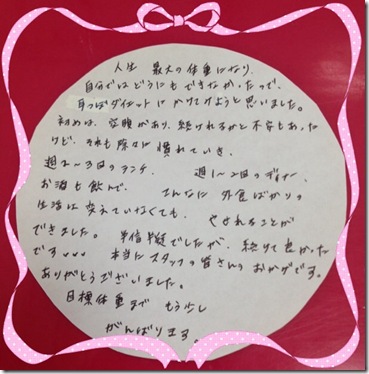 人生 最大の体重になり、
自分ではどうにもできなかったので、
耳つぼダイエットにかけてみようと思いました。
初めは、空腹があり、続けれるかと不安もあった
けど、それも除々に慣れていき、
週2~3回のランチ、 週1~2回のディナー、
お酒も飲んで、 こんなに 外食ばかりの
生活は変えていなくても、 やせれることが
できました。 半信半疑でしたが、続けて良かった
です♡♡♡ 本当にスタッフの皆さんのおかげです。
ありがとうございました。
目標体重まで もう少し
がんばります